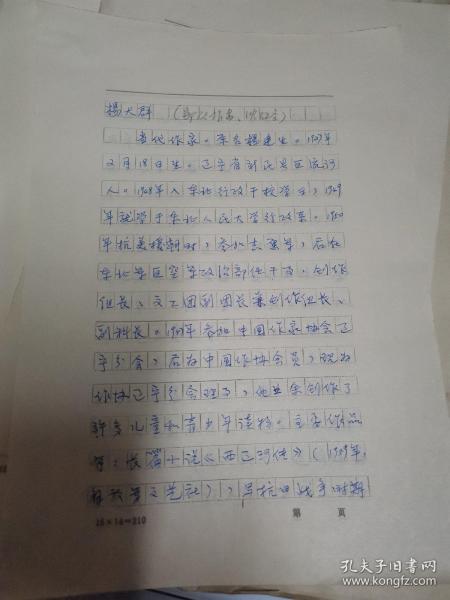 杨大群
当代作家。原名杨連生。1927年
2月18日生。辽宁省新民县巨流河
人。1948年入东北行政干校学习，1949
年就学于东北人民大学行政系。1950
年抗美援朝时，参加志愿军，后在
东北军区空军政治部任干事，创作
组长、文工团副团长兼创作组长、
副科长。年参加中国作家协会辽
宁分会，后为中国作协会员，现为
作协辽宁分会理事，他业余创作了
许多儿童和青少年读物。主要作品
有：长篇小说《西辽河传》（1959年，
文艺社），写抗日战争时期
15×14=210
第 页
孔夫子旧书网
www.kongfz.com